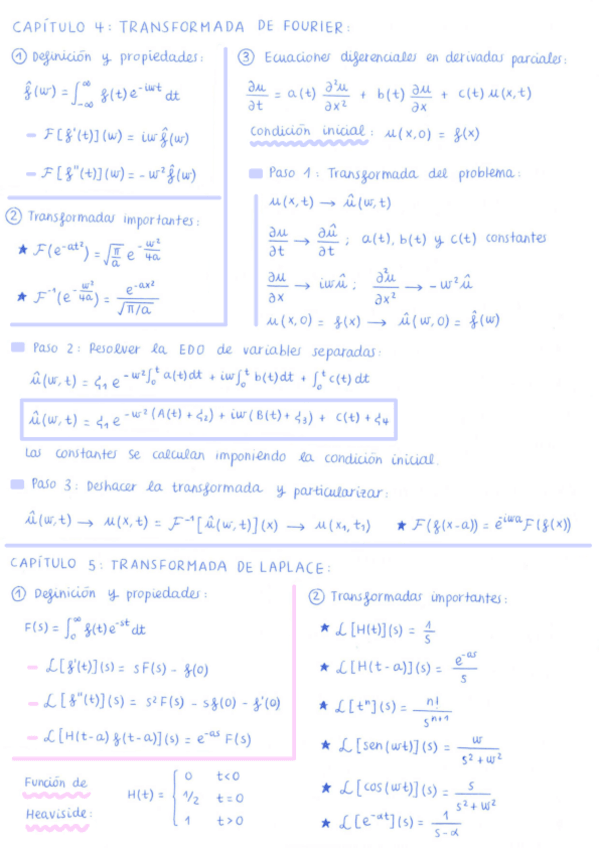 CAPÍTULO 4: TRANSFORMADA DE FOURIER:
① Definición y propiedades:
f̂(w) = ∫_{-∞}^{∞} f(t) e^{-iwt} dt
- F[f'(t)](w) = iw f̂(w)
- F[f''(t)](w) = -w² f̂(w)
② Transformadas importantes:
★ F(e^{-at²}) = √(π/a) e^{-w²/4a}
★ F⁻¹(e^{-w²/4a}) = e^{-ax²}/√(π/a)
③ Ecuaciones diferenciales en derivadas parciales:
∂u/∂t = a(t) ∂²u/∂x² + b(t) ∂u/∂x + c(t) u(x,t)
Condición inicial: u(x,0) = f(x)
Paso 1: Transformada del problema:
u(x,t) → û(w,t)
∂u/∂t → ∂û/∂t ; a(t), b(t) y c(t) constantes
∂u/∂x → iwû ; ∂²u/∂x² → -w²û
u(x,0) = f(x) → û(w,0) = f̂(w)
Paso 2: Resolver la EDO de variables separadas:
û(w,t) = ς₁ e^{-w²∫₀ᵗ a(t)dt + iw∫₀ᵗ b(t)dt + ∫₀ᵗ c(t)dt}
û(w,t) = ς₁ e^{-w²(A(t)+ς₂) + iw(B(t)+ς₃) + c(t)+ς₄}
Las constantes se calculan imponiendo la condición inicial.
Paso 3: Deshacer la transformada y particularizar:
û(w,t) → u(x,t) = F⁻¹[û(w,t)](x) → u(x₁,t₁) ★ F(f(x-a)) = e^{-iwa} F(f(x))
CAPÍTULO 5: TRANSFORMADA DE LAPLACE:
① Definición y propiedades:
F(s) = ∫₀^∞ f(t) e^{-st} dt
- L[f'(t)](s) = sF(s) - f(0)
- L[f''(t)](s) = s²F(s) - sf(0) - f'(0)
- L[H(t-a) f(t-a)](s) = e^{-as} F(s)
Función de
Heaviside:
H(t) = { 0 t<0
1/2 t=0
1 t>0
② Transformadas importantes:
★ L[H(t)](s) = 1/s
★ L[H(t-a)](s) = e^{-as}/s
★ L[tⁿ](s) = n!/s^{n+1}
★ L[sen(wt)](s) = w/(s²+w²)
★ L[cos(wt)](s) = s/(s²+w²)
★ L[e^{-αt}](s) = 1/(s-α)